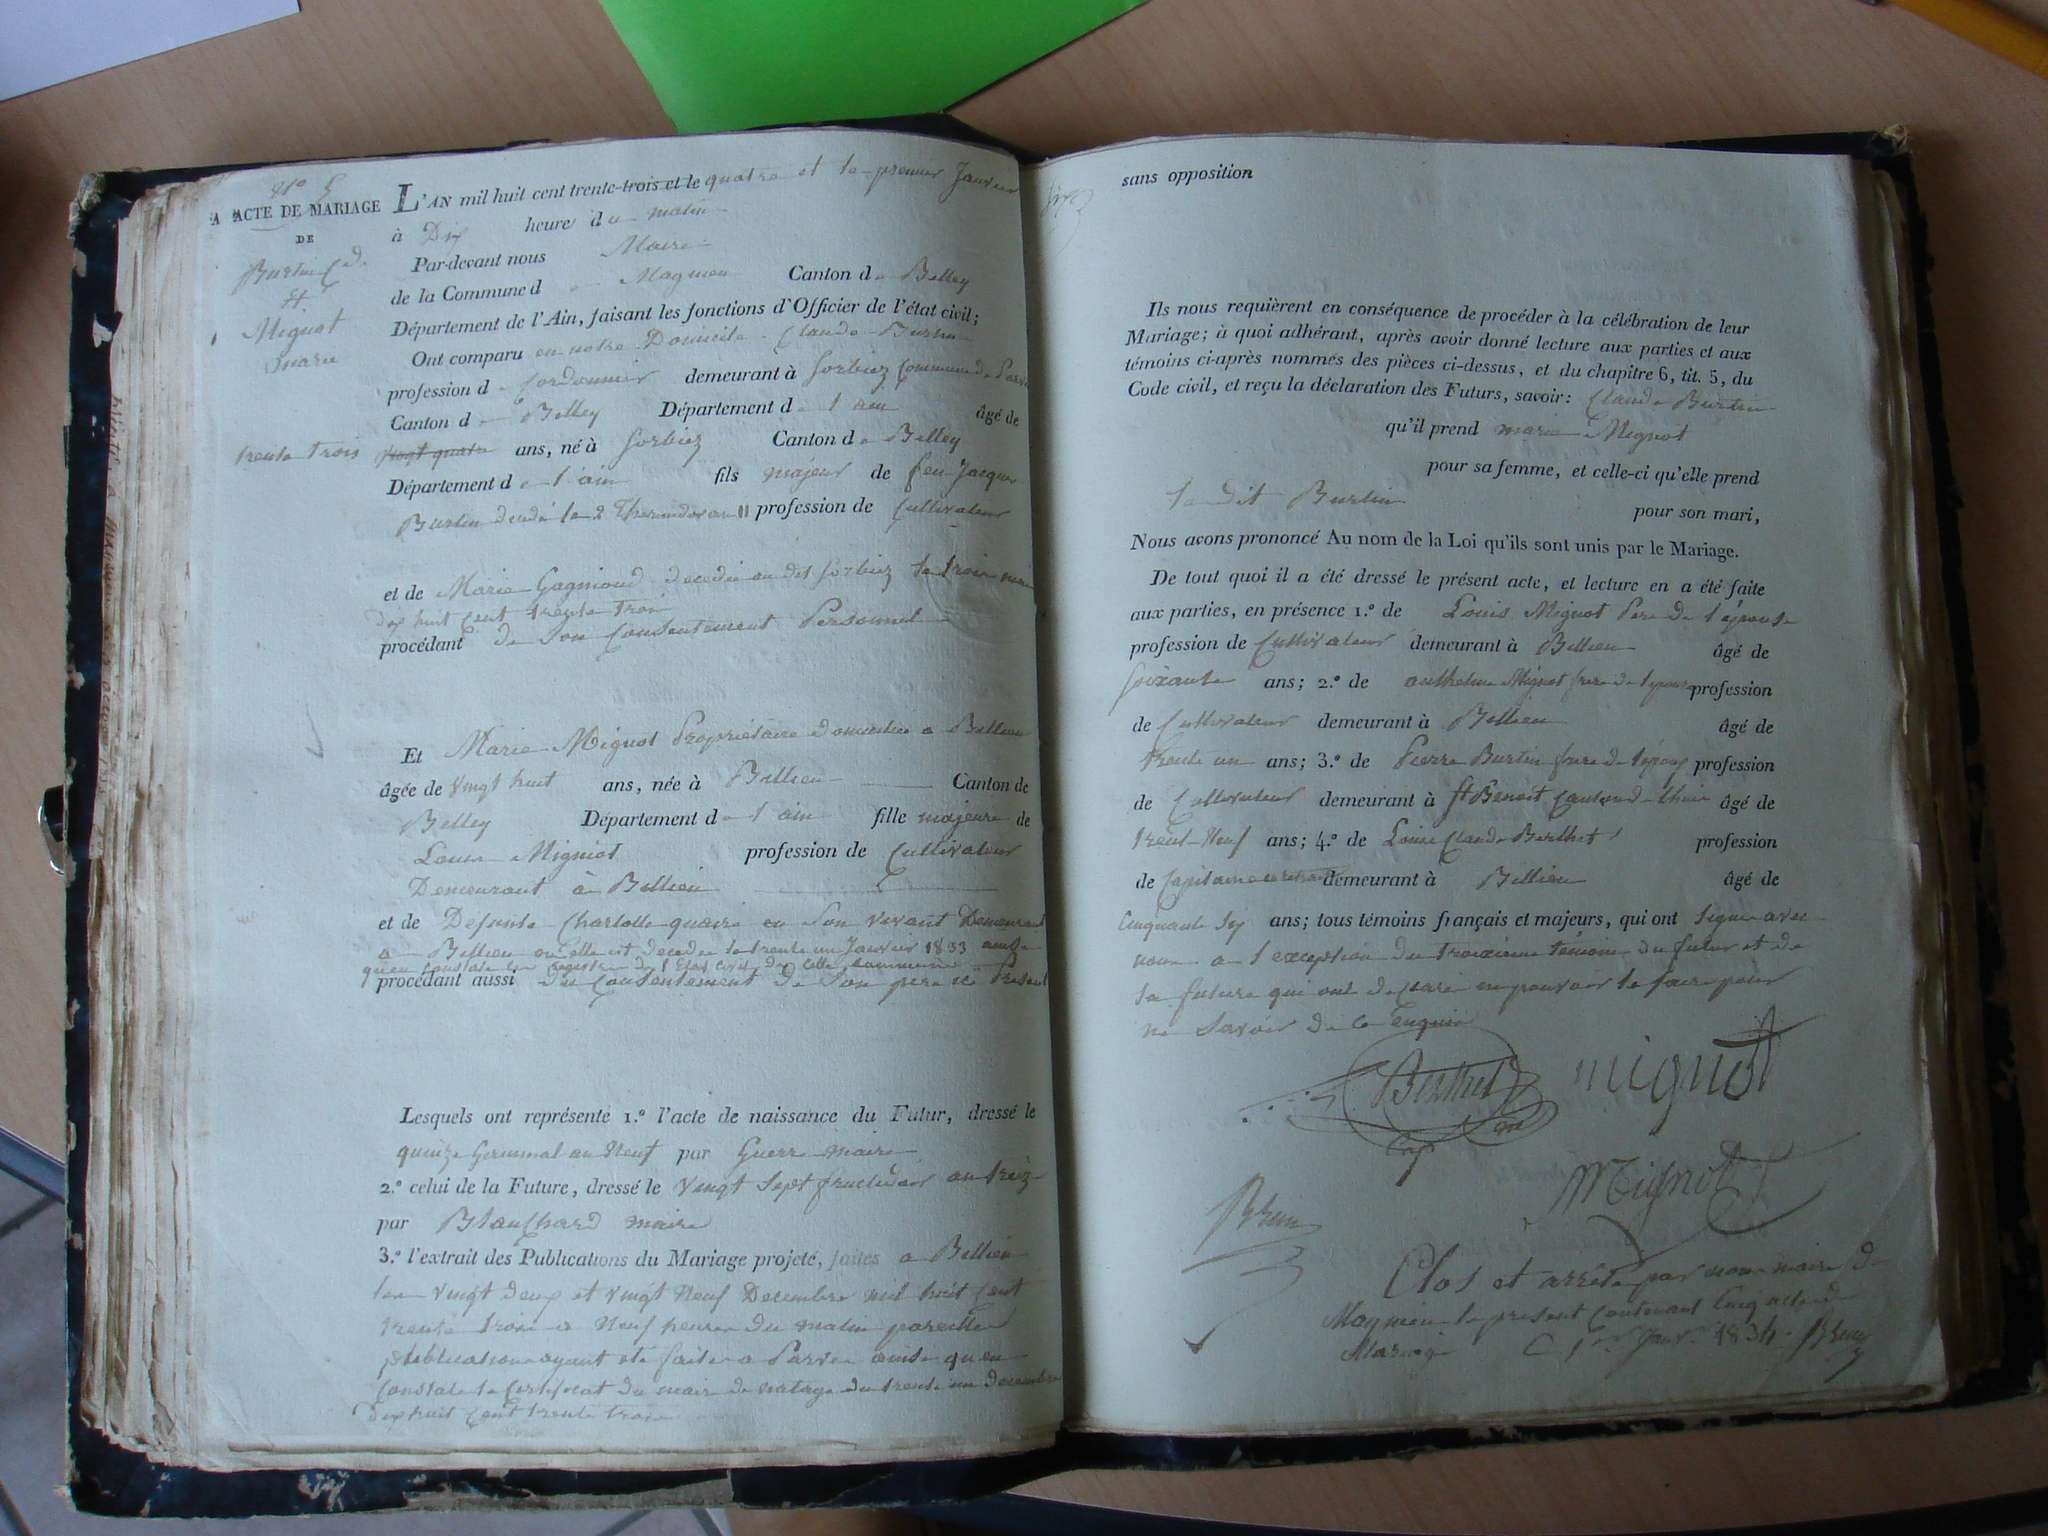 N° 5
ACTE DE MARIAGE
DE
Burtin Cd.
et
Mignot
marie
L'AN mil huit cent trente-trois et le quatre et le premier Janvier
à Dix heure du matin
Par-devant nous Maire
de la Commune d Magnieu Canton de Belley
Département de l'Ain, faisant les fonctions d'Officier de l'état civil;
Ont comparu en notre Domicile Claude Burtin
profession de Cordonnier demeurant à Sorbiez Commune de
Canton de Belley Département de l ain âgé de
trente trois vingt quatre ans, né à Sorbiez Canton de Belley
Département de l'ain fils majeur de feu Jacques
Burtin décédé le 2 Thermidor an 11 profession de Cultivateur
et de Marie Gagnioud decedée au dit Sorbiez le trois
dix huit cent trente trois
procédant de son Consentement Personnel
Et Marie Mignot Propriétaire domiciliée a Billieu
âgée de vingt huit ans, née à Billieu Canton de
Belley Département de l ain fille majeure de
Louis Migniot profession de Cultivateur
Demeurant à Billieu
et de Defunte Charlotte quaire en son vivant Demeurant
a Billieu ou elle est decedee le trente un Janvier 1833 ainsi
qu'en constate les registres de l'Etat civil de cette commune
procédant aussi du Consentement de Son pere ici Present
Lesquels ont représenté 1.º l'acte de naissance du Futur, dressé le
quinze Germinal an Neuf par Guerre maire
2.º celui de la Future, dressé le vingt sept fructidor an treiz
par Blanchard maire
3.º l'extrait des Publications du Mariage projeté, faites a Billieu
les vingt deux et vingt Neuf Decembre mil huit cent
trente trois a Neuf heures du matin pareilles
publications ayant été faites a Parves ainsi qu'en
Constate le Certificat du maire de natage du trente un decembre
dix huit cent trente trois
sans opposition
Ils nous requièrent en conséquence de procéder à la célébration de leur
Mariage; à quoi adhérant, après avoir donné lecture aux parties et aux
témoins ci-après nommés des pièces ci-dessus, et du chapitre 6, tit. 5, du
Code civil, et reçu la déclaration des Futurs, savoir: Claude Burtin
qu'il prend marie Mignot
pour sa femme, et celle-ci qu'elle prend
le dit Burtin
pour son mari,
Nous avons prononcé Au nom de la Loi qu'ils sont unis par le Mariage.
De tout quoi il a été dressé le présent acte, et lecture en a été faite
aux parties, en présence 1.º de Louis Mignot Pere de l'épouse
profession de Cultivateur demeurant à Billieu âgé de
soixante ans; 2.º de anthelme Mignot frere de l'epouse profession
de Cultivateur demeurant à Billieu âgé de
trente un ans; 3.º de Pierre Burtin frere de l'époux profession
de Cultivateur demeurant à St Benoit Canton d âgé de
trent-Neuf ans; 4.º de Louis Claude Berthet profession
de Capitaine en retraite demeurant à Billieu âgé de
Cinquante six ans; tous témoins français et majeurs, qui ont signé avec
nous a l exception du troixieme témoin du futur et de
la future qui ont declaré ne pouvoir le faire pour
ne savoir de ce enquis
Berthet mignot
Cap
Mignot
Brun
Clos et arrêté par nous maire de
Magnieu le present contenant Cinq actes de
Mariage C 1er Janv. 1834. Brun